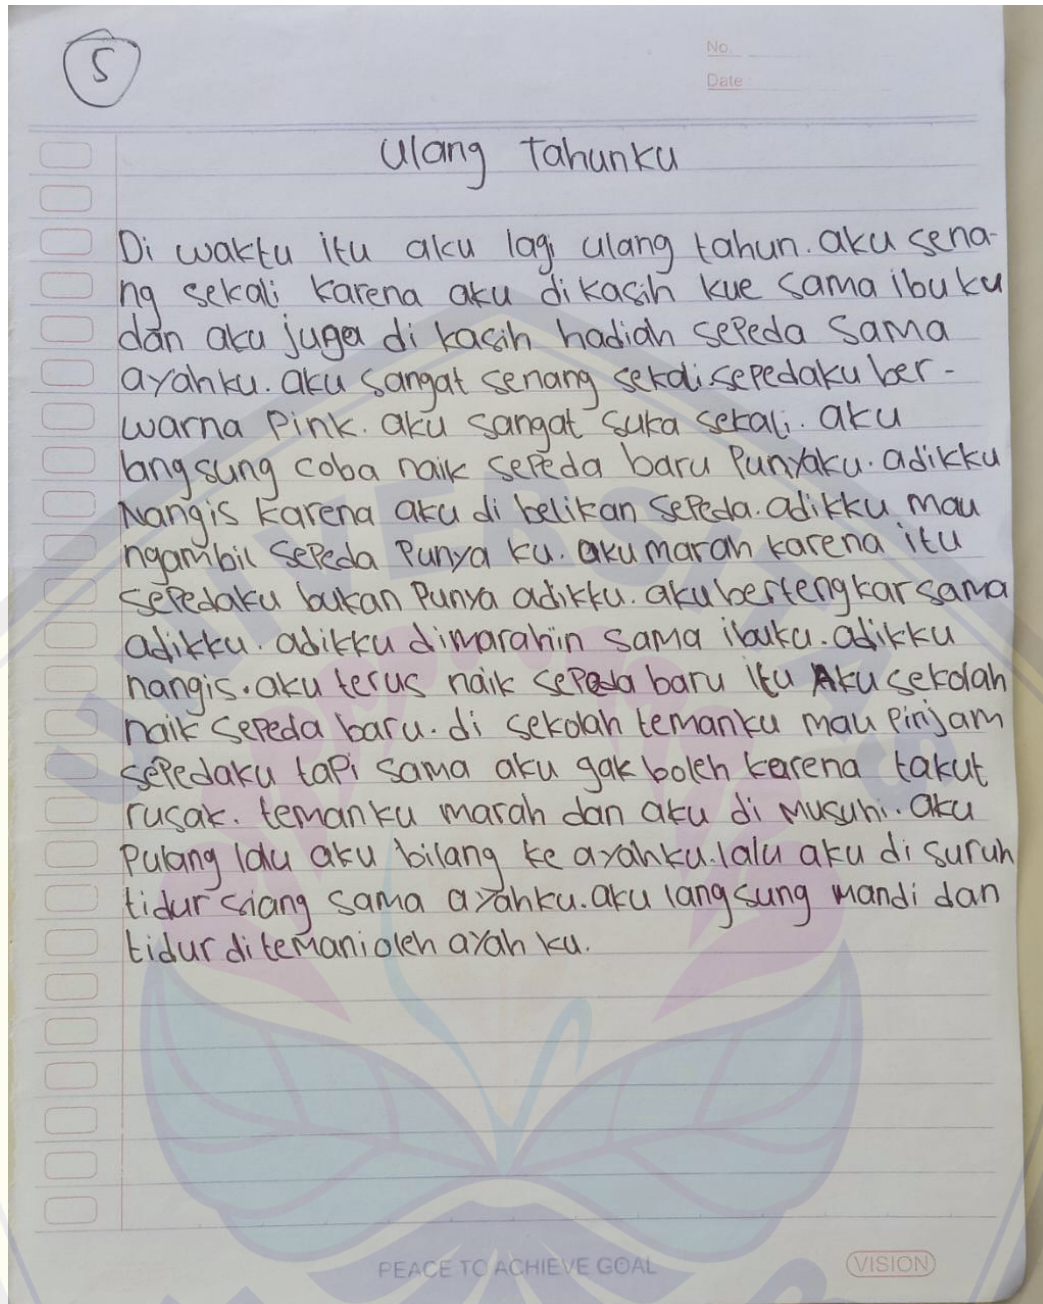 5
No.
Date
Ulang tahunku
Di waktu itu aku lagi ulang tahun. aku sena-
ng sekali karena aku di kasih kue sama ibu ku
dan aku juga di kasih hadiah sepeda sama
ayahku. aku sangat senang sekali. sepedaku ber-
warna Pink. aku sangat suka sekali. aku
langsung coba naik sepeda baru Punyaku. adikku
Nangis karena aku di belikan sepeda. adikku mau
ngambil sepeda Punya ku. aku marah karena itu
sepedaku bukan Punya adikku. aku bertengkar sama
adikku. adikku dimarahin sama ibuku. adikku
nangis. aku terus naik sepeda baru itu Aku sekolah
naik sepeda baru. di sekolah temanku mau Pinjam
sepedaku tapi sama aku gak boleh karena takut
rusak. temanku marah dan aku di Musuhi. aku
Pulang lalu aku bilang ke ayahku. lalu aku di suruh
tidur siang sama ayahku. aku langsung mandi dan
tidur di temani oleh ayah ku.
PEACE TO ACHIEVE GOAL
VISION
UNIVERSITAS